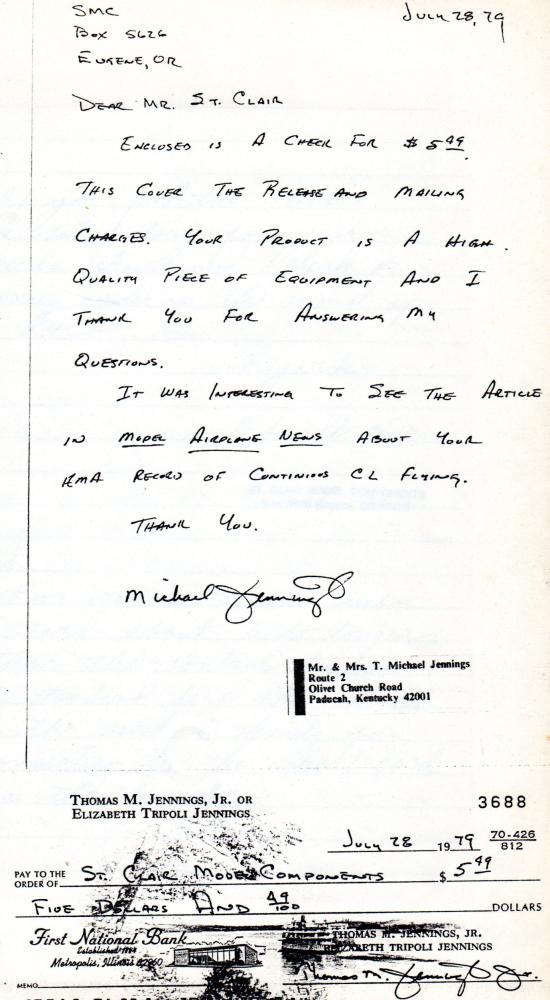 SMC
July 28, 79
Box 5626
Eugene, OR
Dear Mr. St. Clair
Enclosed is A Check For $ 5 49
This Cover The Release And Mailing
Charges. Your Product is A High
Quality Piece of Equipment And I
Thank You For Answering My
Questions.
It Was Interesting To See The Article
in Model Airplane News About Your
Record of Continious CL Flying.
Thank You.
Michael Jennings
Mr. & Mrs. T. Michael Jennings
Route 2
Olivet Church Road
Paducah, Kentucky 42001
THOMAS M. JENNINGS, JR. OR
ELIZABETH TRIPOLI JENNINGS
3688
July 28 1979 70-426/812
PAY TO THE ORDER OF St. Clair Model Components $ 5 49
Five Dollars And 49/100 DOLLARS
First National Bank
Established
Metropolis, Illinois 62960
THOMAS M. JENNINGS, JR.
ELIZABETH TRIPOLI JENNINGS
MEMO
Thomas M. Jennings Jr.